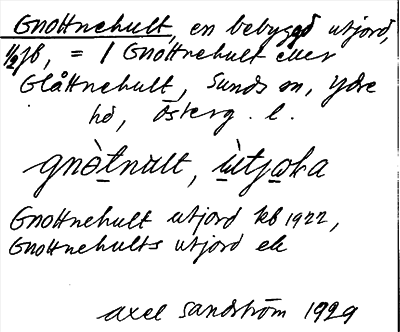 Gnottnehult, en bebyggd utjord,
1/2 jb, = / Gnottnehult eller
Glåttnehult, Sunds sn, Ydre
hd, Österg. l.
gnòtnult, ùtjoka
Gnottnehult utjord kb 1922,
Gnottnehults utjord ek
Axel Sandström 1929